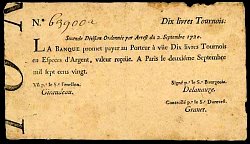 N.º 639000 Dix livres Tournois.
Seconde Division Ordonnée par Arrest du 2. Septembre 1720.
LA BANQUE promet payer au Porteur à vüe Dix livres Tournois
en Especes d'Argent, valeur reçeüe. A Paris le deuxième Septembre
mil sept cens vingt.
Vû p.r le S.r Fenellon. Signé p.r le S.r Bourgeois.
Giraudeau. Delanauze.
Controllé p.r le S.r Durevest.
Granet.